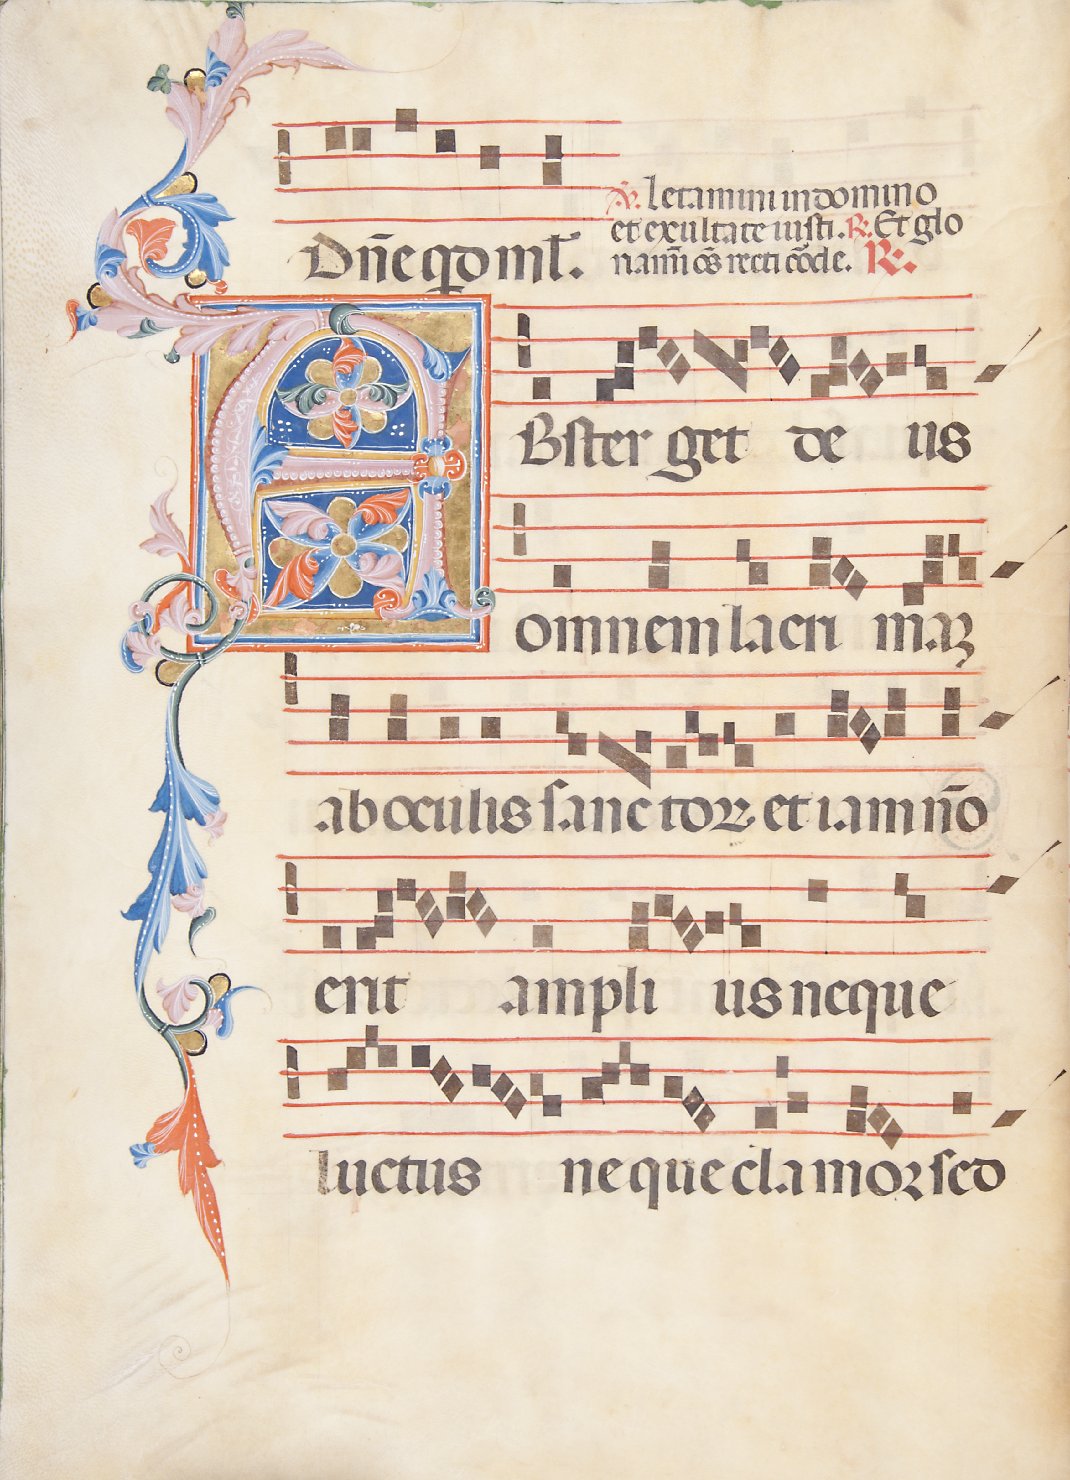 ℣. letamini in domino
et exultate iusti. ℟. Et glo
Dn̄e qd ml̄. niamī oēs recti cōde. ℟.
ABster get de us
omnem lacri maꝝ
ab oculis sanc toꝝ et iam nō
erit ampli us neque
luctus neque clamor sed